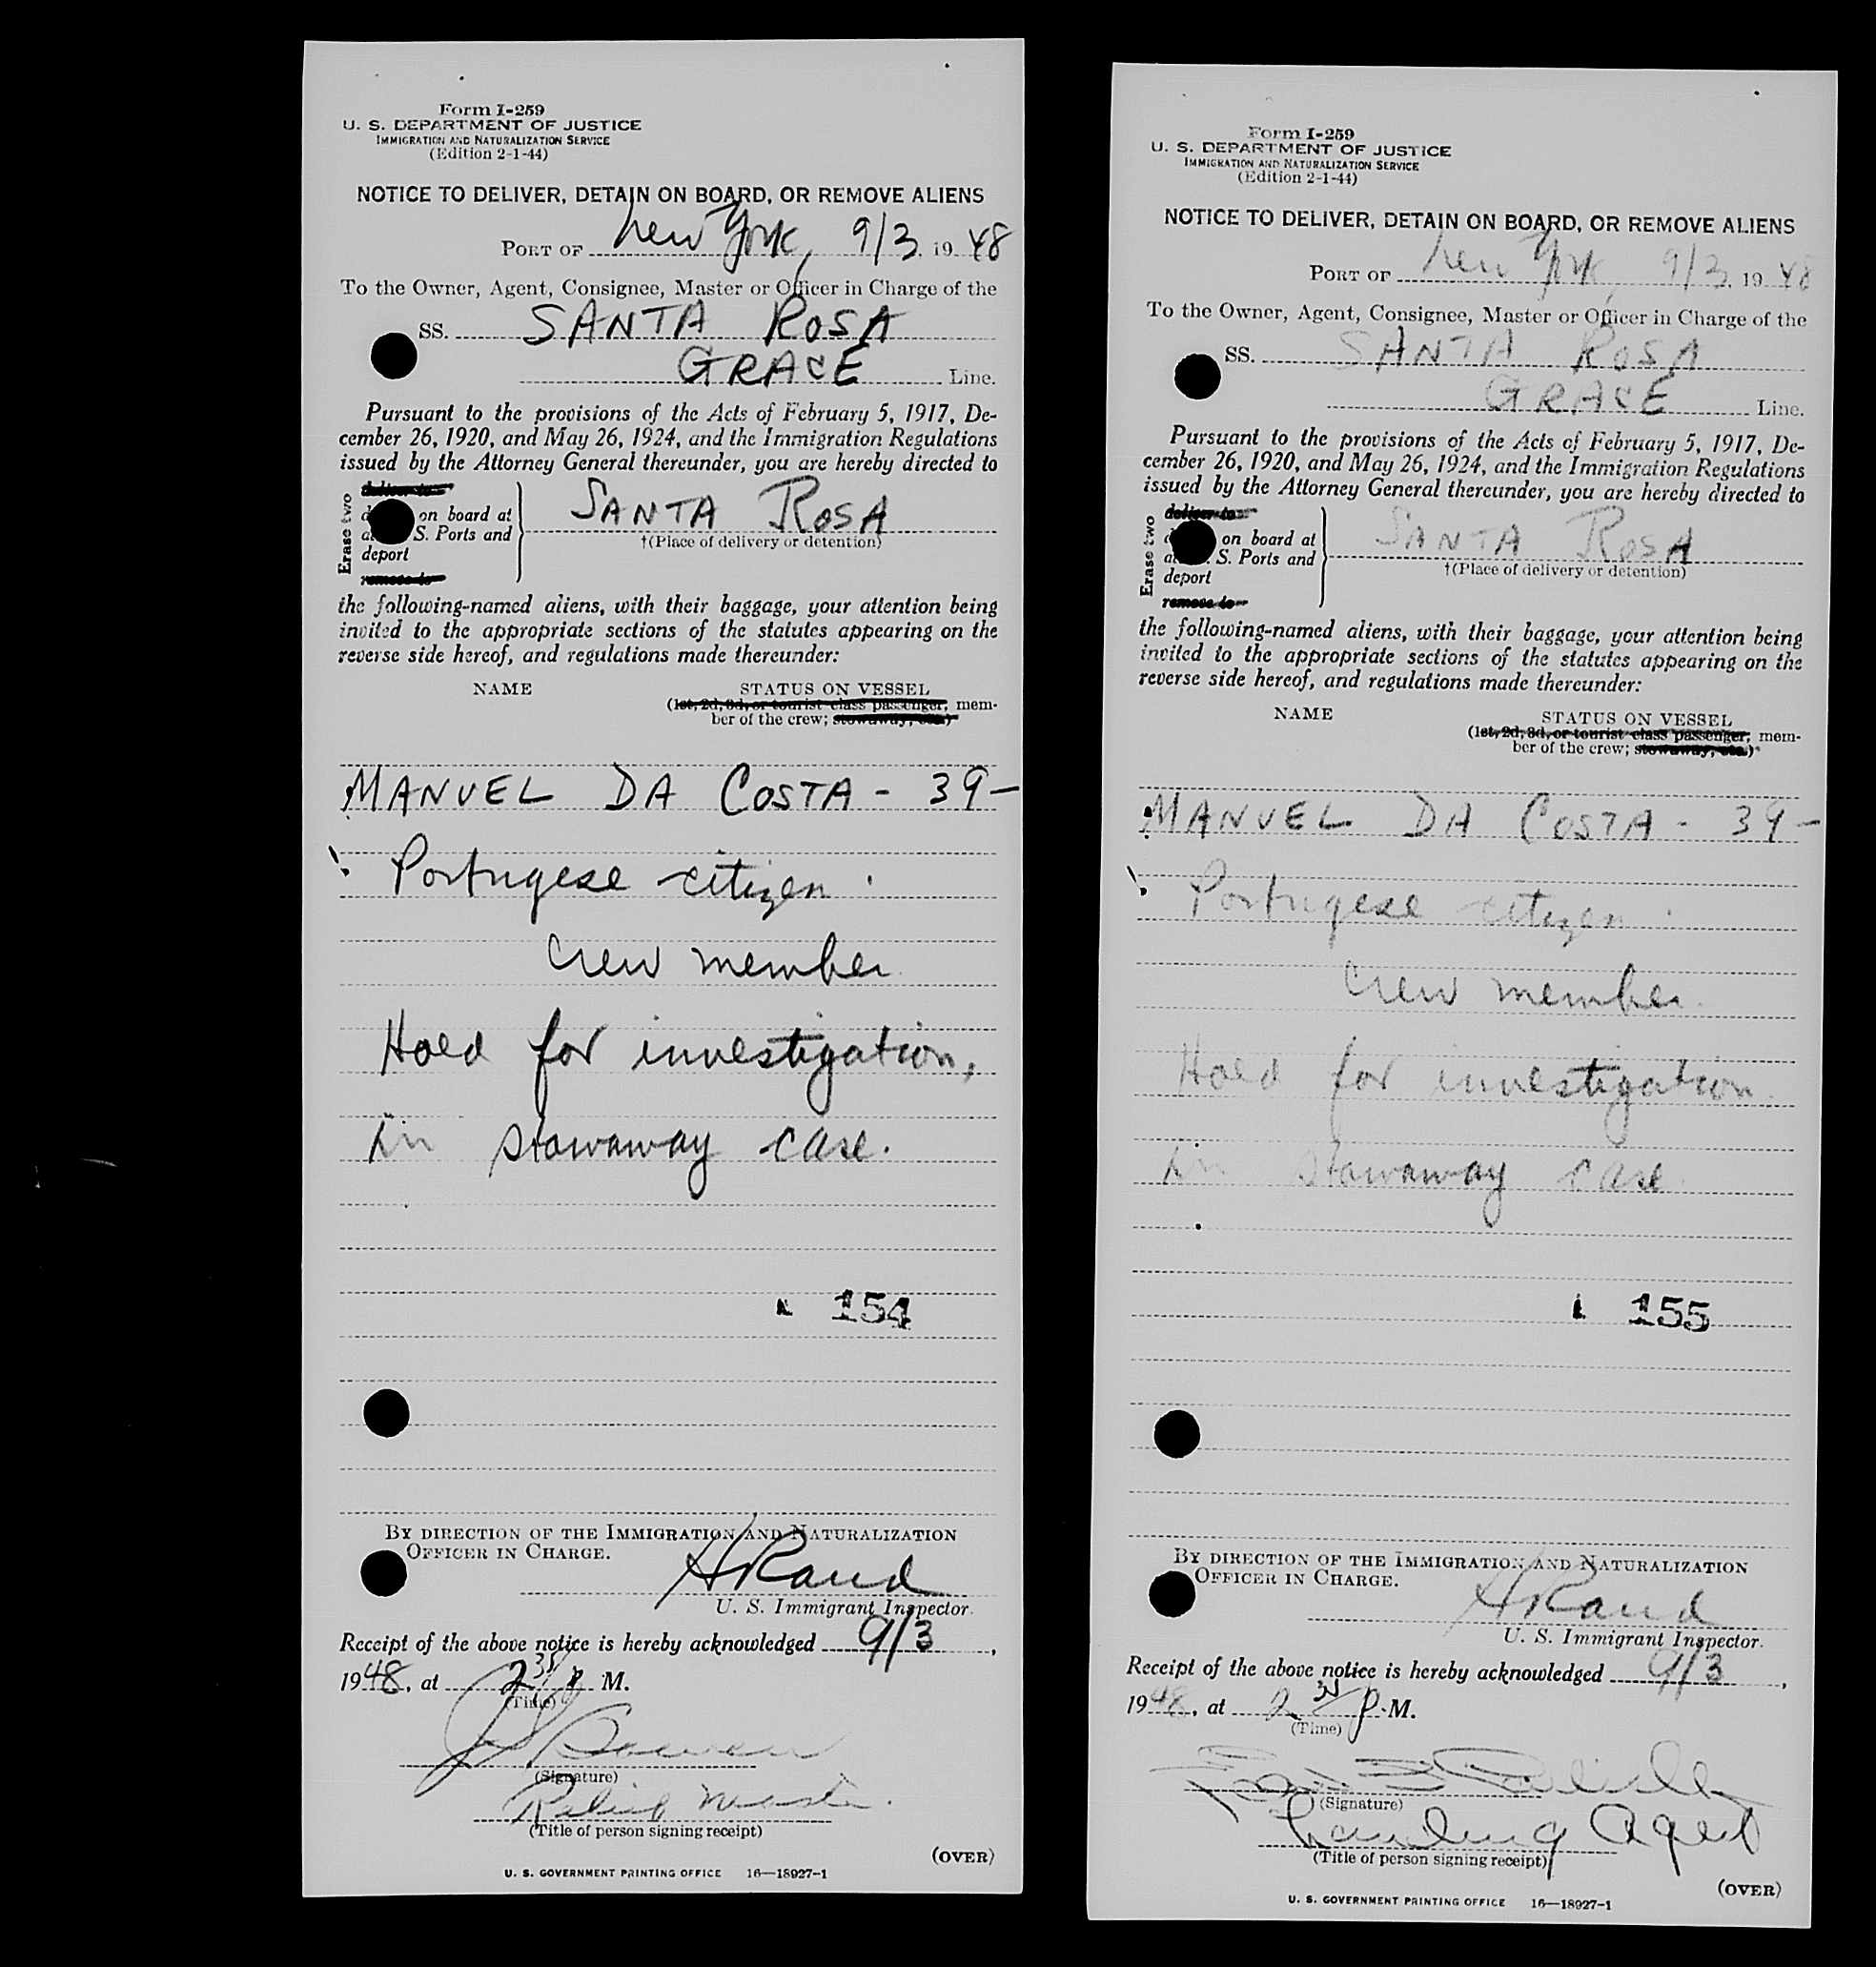 Form I-259
U. S. DEPARTMENT OF JUSTICE
IMMIGRATION AND NATURALIZATION SERVICE
(Edition 2-1-44)
NOTICE TO DELIVER, DETAIN ON BOARD, OR REMOVE ALIENS
PORT OF New York, 9/3, 1948
To the Owner, Agent, Consignee, Master or Officer in Charge of the
SS. SANTA ROSA
GRACE Line.
Pursuant to the provisions of the Acts of February 5, 1917, De-
cember 26, 1920, and May 26, 1924, and the Immigration Regulations
issued by the Attorney General thereunder, you are hereby directed to
Erase two
deliver to
on board at
S. Ports and
deport
remove to
SANTA ROSA
†(Place of delivery or detention)
the following-named aliens, with their baggage, your attention being
invited to the appropriate sections of the statutes appearing on the
reverse side hereof, and regulations made thereunder:
NAME STATUS ON VESSEL
(1st, 2d, 3d, or tourist class passenger, mem-
ber of the crew; stowaway, etc.)
MANUEL DA COSTA - 39 -
Portugese citizen.
Crew member
Hold for investigation,
in stowaway case.
154
BY DIRECTION OF THE IMMIGRATION AND NATURALIZATION
OFFICER IN CHARGE.
H Rand
U. S. Immigrant Inspector.
Receipt of the above notice is hereby acknowledged 9/3,
1948, at 2 35 P M.
(Time)
(Signature)
Relief Master.
(Title of person signing receipt)
(OVER)
U. S. GOVERNMENT PRINTING OFFICE 16—18927-1
Form I-259
U. S. DEPARTMENT OF JUSTICE
IMMIGRATION AND NATURALIZATION SERVICE
(Edition 2-1-44)
NOTICE TO DELIVER, DETAIN ON BOARD, OR REMOVE ALIENS
PORT OF New York, 9/3, 1948
To the Owner, Agent, Consignee, Master or Officer in Charge of the
SS. SANTA ROSA
GRACE Line.
Pursuant to the provisions of the Acts of February 5, 1917, De-
cember 26, 1920, and May 26, 1924, and the Immigration Regulations
issued by the Attorney General thereunder, you are hereby directed to
Erase two
deliver to
on board at
S. Ports and
deport
remove to
SANTA ROSA
†(Place of delivery or detention)
the following-named aliens, with their baggage, your attention being
invited to the appropriate sections of the statutes appearing on the
reverse side hereof, and regulations made thereunder:
NAME STATUS ON VESSEL
(1st, 2d, 3d, or tourist class passenger, mem-
ber of the crew; stowaway, etc.)
MANUEL DA COSTA - 39 -
Portugese citizen.
Crew member.
Hold for investigation
in stowaway case
155
BY DIRECTION OF THE IMMIGRATION AND NATURALIZATION
OFFICER IN CHARGE.
H Rand
U. S. Immigrant Inspector.
Receipt of the above notice is hereby acknowledged 9/3,
1948, at 2 35 P.M.
(Time)
(Signature)
Landing Agent
(Title of person signing receipt)
(OVER)
U. S. GOVERNMENT PRINTING OFFICE 16—18927-1